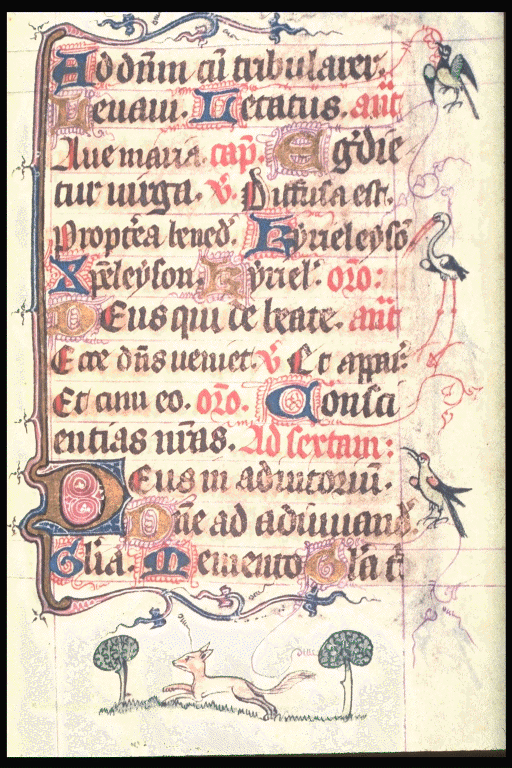 Ad dn̄m cū tribularer.
Leuaui. Letatus. ant̄
Aue maria. cap̄. Egr̄die
tur uirga. v. Diffusa est.
Propterea bened̄. Kyrieleysō
Xp̄eleyson. Kyriel̄. orō:
Deus qui de beate. ant̄
Ecce dn̄s ueniet. v Et appar̄.
Et cum eo. orō. Consci
entias nr̄as. Ad sextam:
Deus in adiutoriū.
Dn̄e ad adiuuand̄.
Gl̄ia. Memento Gl̄a t̄